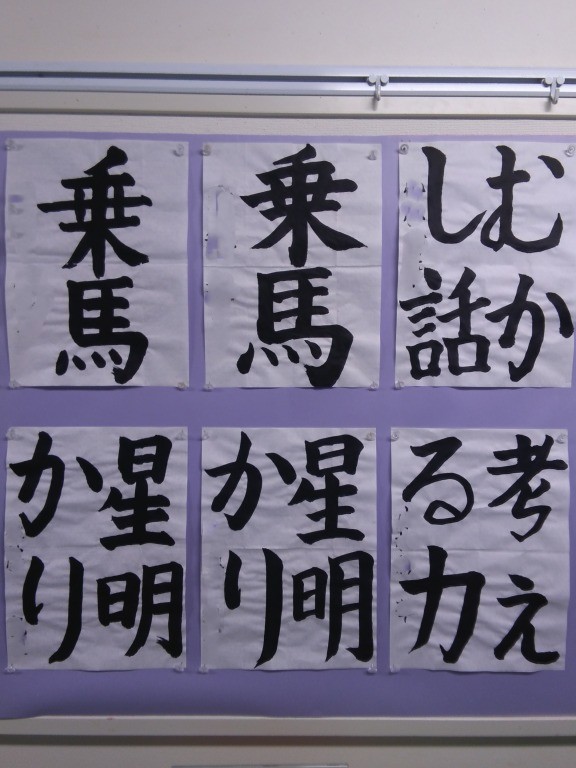 むか
し話
乗馬
乗馬
考え
る力
星明
かり
星明
かり